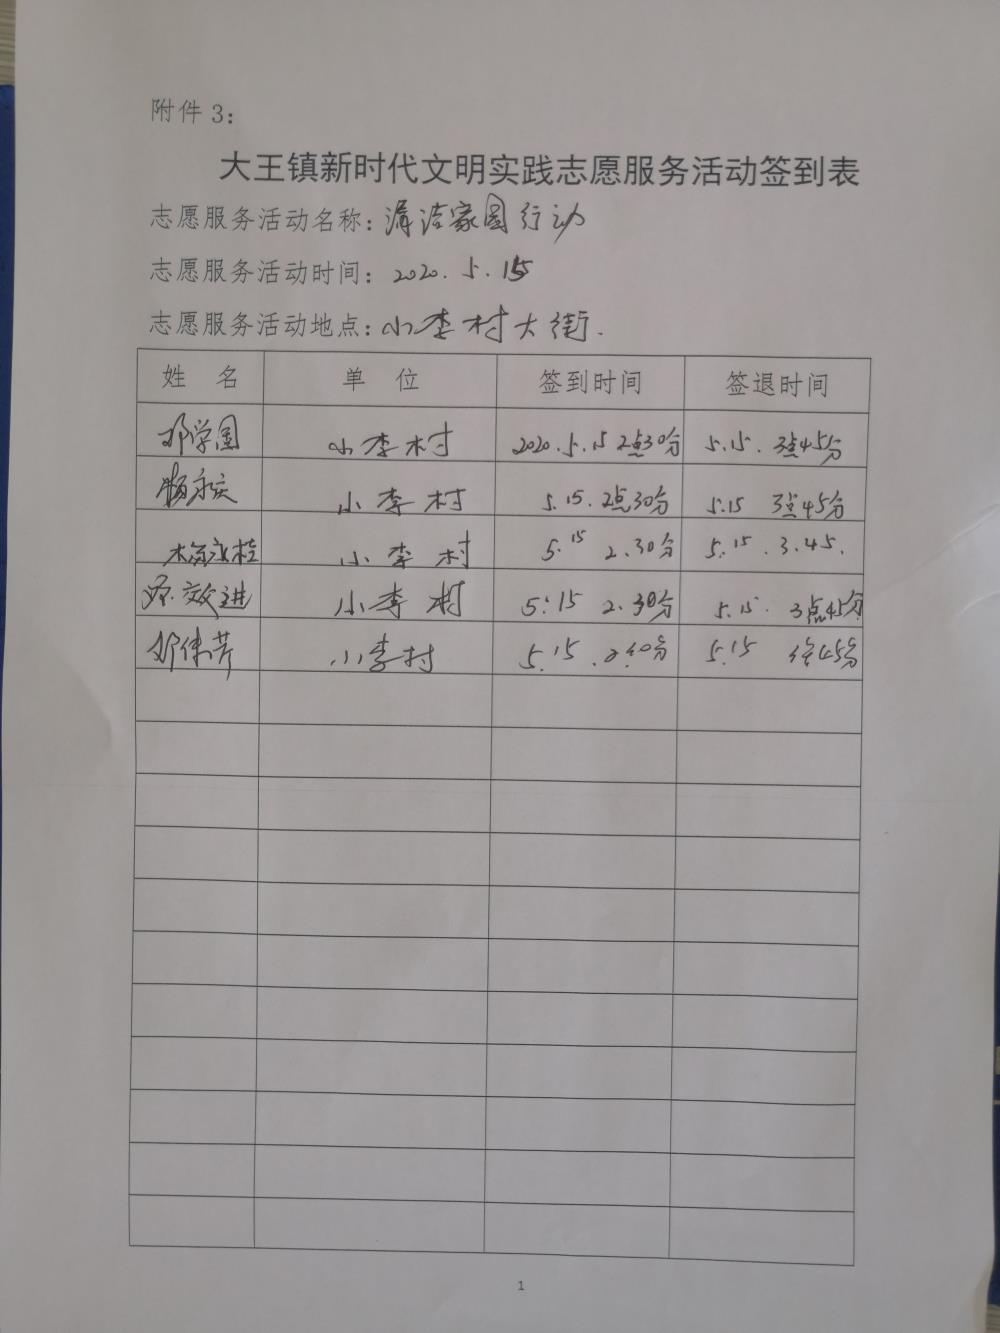 附件3：
大王镇新时代文明实践志愿服务活动签到表
志愿服务活动名称：清洁家园行动
志愿服务活动时间：2020.5.15
志愿服务活动地点：小李村大街.
姓 名 单 位 签到时间 签退时间
邓学国 小李村 2020.5.15 2点30分 5.15. 3点45分
杨永庆 小李村 5.15.2点30分 5.15 3点45分
杨永桂 小李村 5.15 2.30分 5.15.3.45.
效进 小李村 5.15 2.30分 5.15. 3点45分
邓伟芳 小李村 5.15 5.15 45分
1